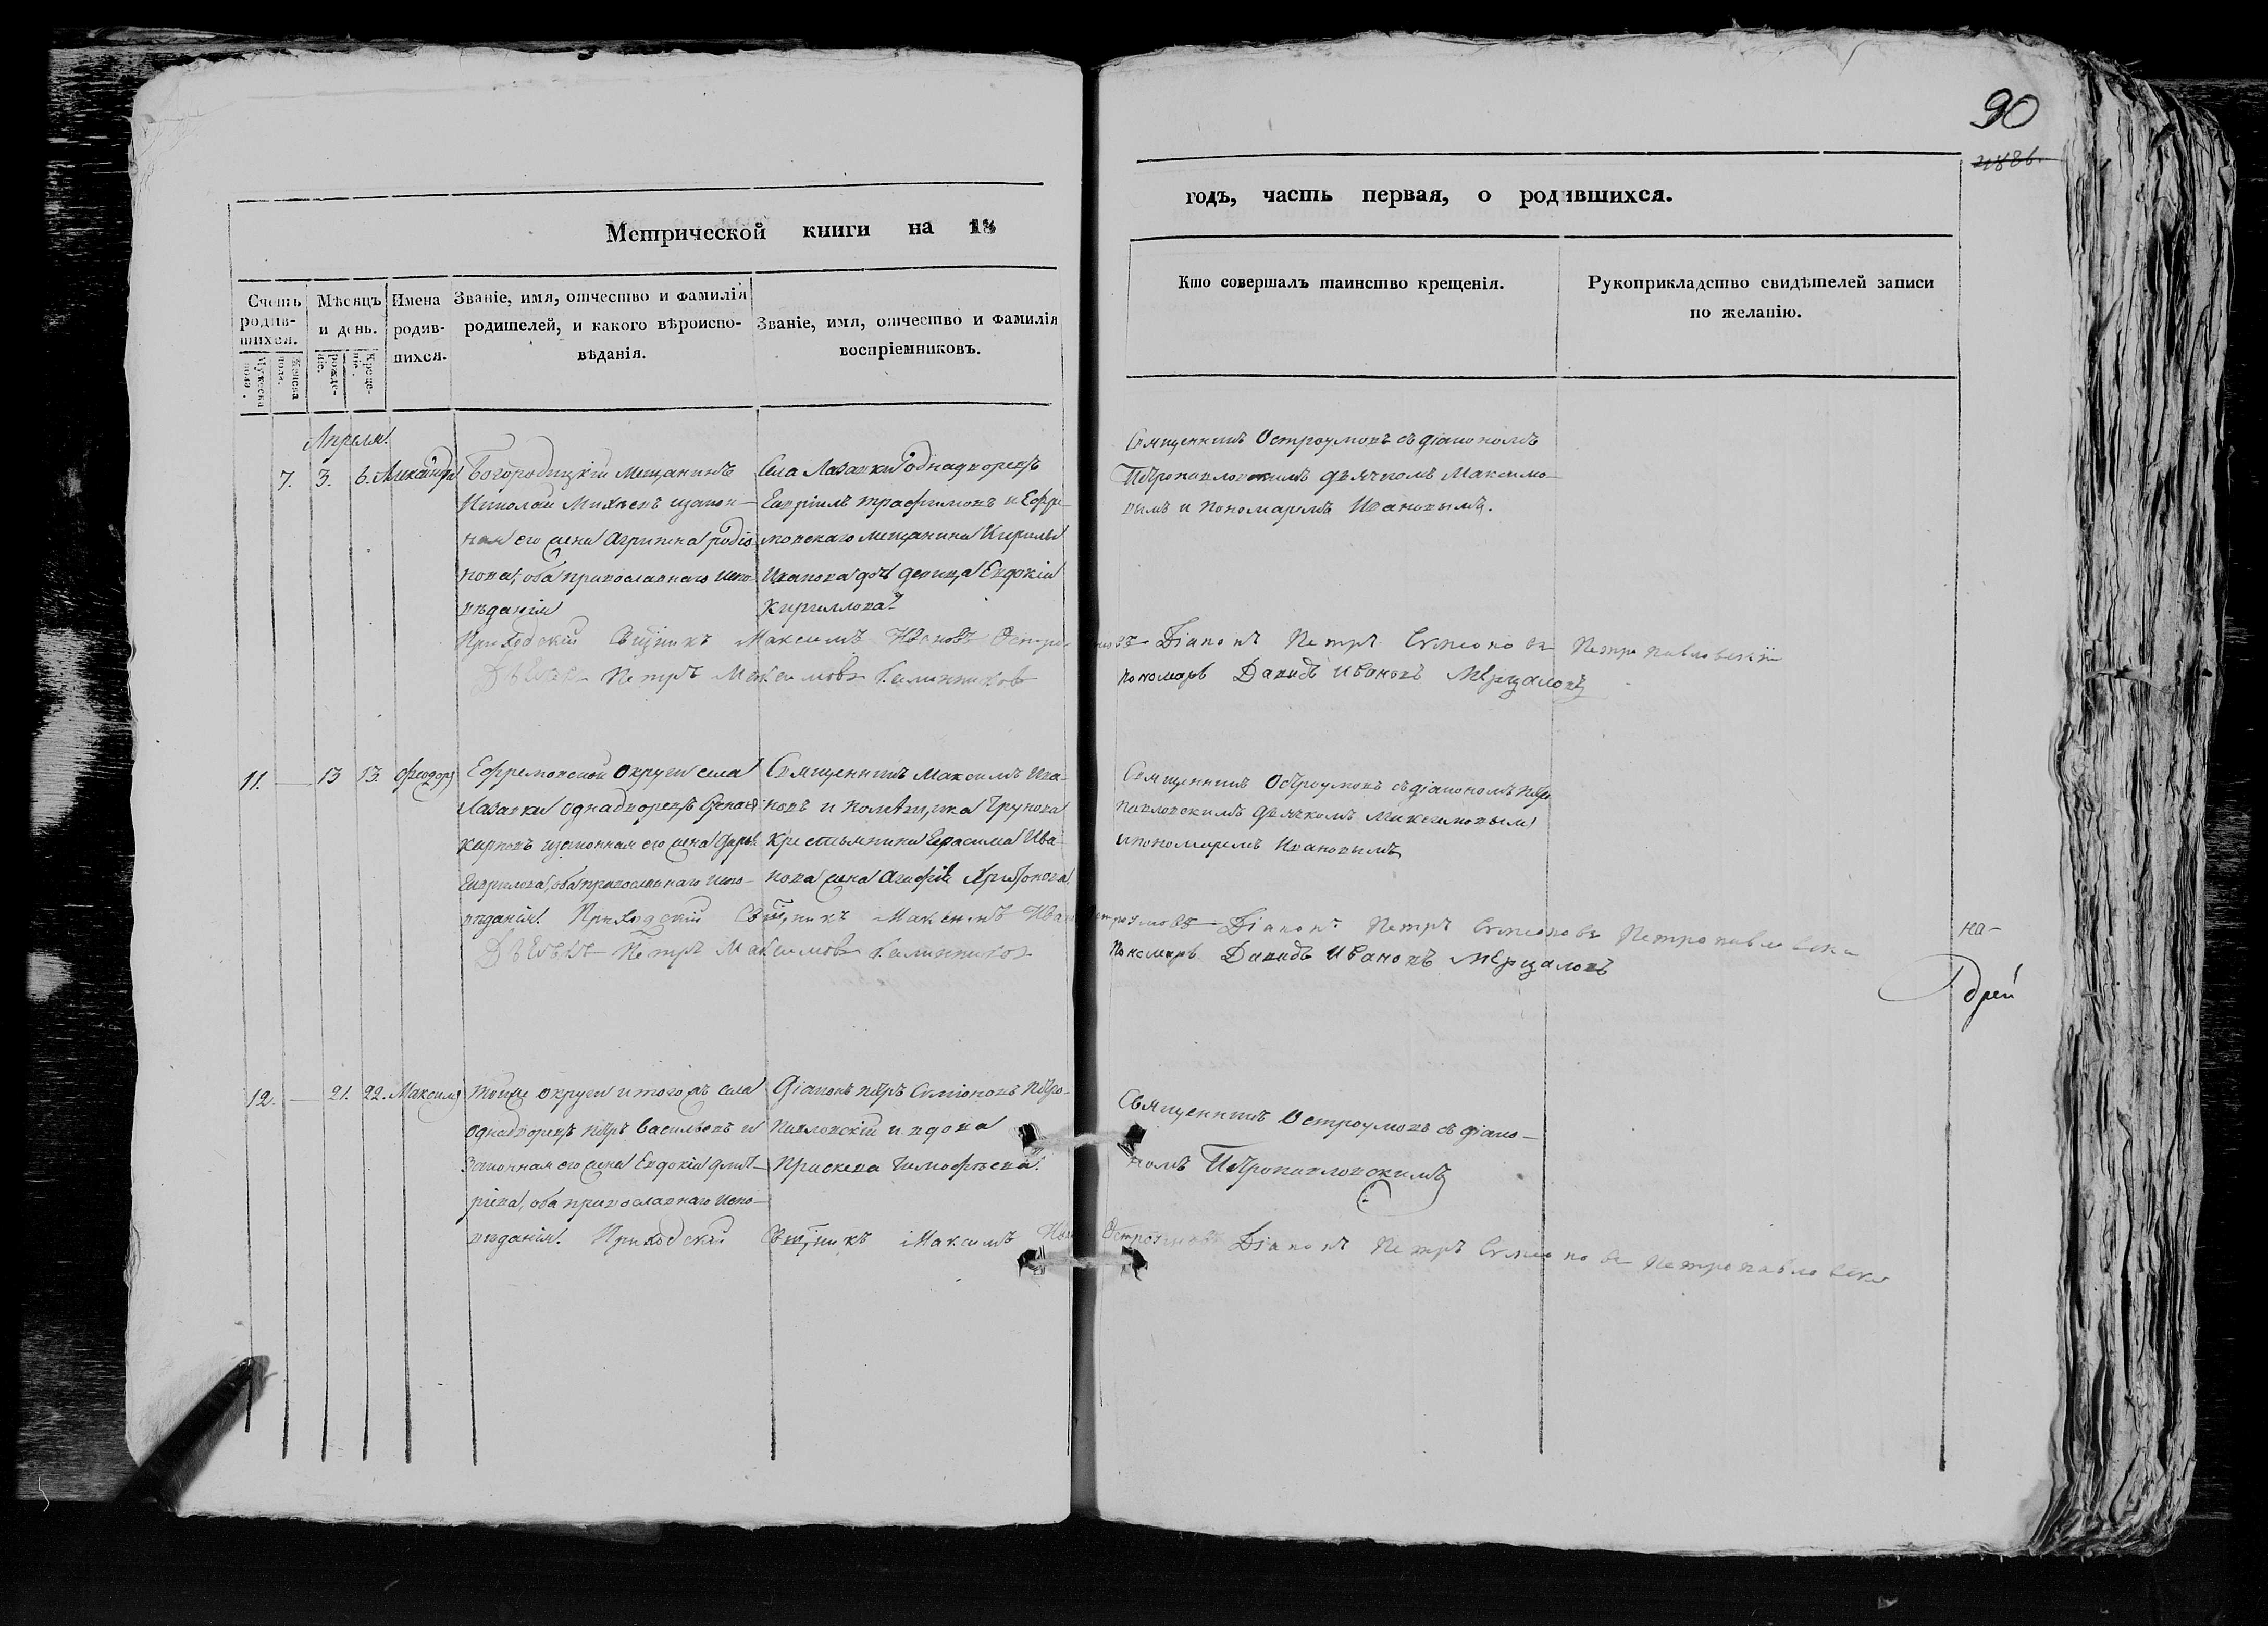 90
4886.
Метрической книги на 18
годъ, часть первая, о родившихся.
Счетъ родившихся.
Мужеска пола.
Женска пола.
Мѣсяцъ и день.
рожденіе.
Крещеніе.
Имена родившихся.
Званіе, имя, отчество и фамилія
родителей, и какого вѣроиспо-
вѣданія.
Званіе, имя, отчество и фамилія
воспріемниковъ.
Кто совершалъ таинство крещенія.
Рукоприкладство свидѣтелей записи
по желанію.
Апреля
7. 3. 6. Александра
Богородицкій мещанинъ
Николай Михѣевъ изакон-
ная его жена Агрипена родіо
нова, оба православнаго испо-
вѣданія
Села Лазавки однадворецъ
Гавріилъ трафимовъ и Ефре-
мовскаго мещанина Кирилы
Иванова дочь девица Евдокія
Кириллова
Священникъ Остроумовъ съ діакономъ
Петропавловскимъ дьячкомъ Максимо-
вымъ и пономаремъ Ивановымъ.
Приходскій Свщникъ Максимъ Ивановъ Остроумовъ Діаконъ Петръ Симеоновъ Петропавловскій
Дьячекъ Петръ Максимовъ
пономарь Давидъ Ивановъ Мерцаловъ
11. — 13 13. Феодоръ
Ефремовской Округи села
Лазавки однадворецъ
Карповъ изаконная его жена Дарья
Гаврилова, оба православнаго испо-
вѣданія
Священникъ Максимъ Ива-
новъ и помѣщика Трунова
крестьянина Герасима Ива-
нова жена Агафія
Священникъ Остроумовъ съ діакономъ Петро
павловскимъ дьячкомъ Максимовымъ
ипономаремъ Ивановымъ
Приходскій Свщникъ Максимъ Ива Остроумовъ Діаконъ Петръ Симеоновъ Петропавловски
Дьячекъ Петръ Максимовъ
пономарь Давидъ Ивановъ Мерцаловъ
на-
дрей
12. — 21. 22. Максимъ
тойже округи итогожъ села
однадворецъ петръ Васильевъ и
законная его жена Евдокія дмит-
ріева, оба православнаго испо-
вѣданія
Діаконъ петръ Симіоновъ Петро-
павловскій и вдова
Праскева Тимофѣева.
Священникъ Остроумовъ съ діако-
номъ Петропавловскимъ
Приходскій Свщникъ Максимъ Ива Остроумовъ Діаконъ Петръ Симеоновъ Петропавловски